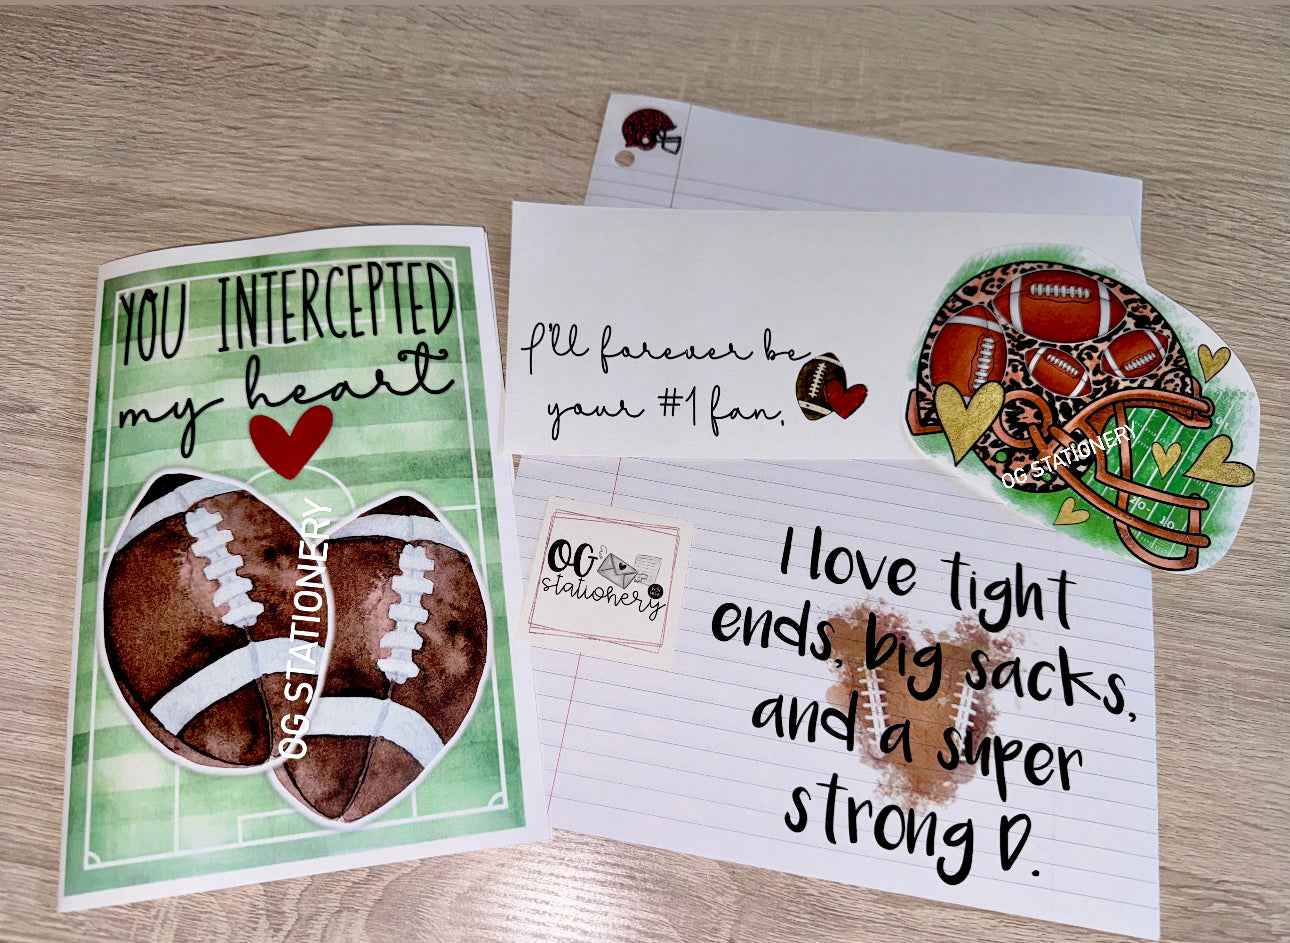 YOU INTERCEPTED
my heart
OG STATIONERY
I'll forever be
your #1 fan.
OG STATIONERY
OG
stationery
I love tight
ends, big sacks,
and a super
strong D.